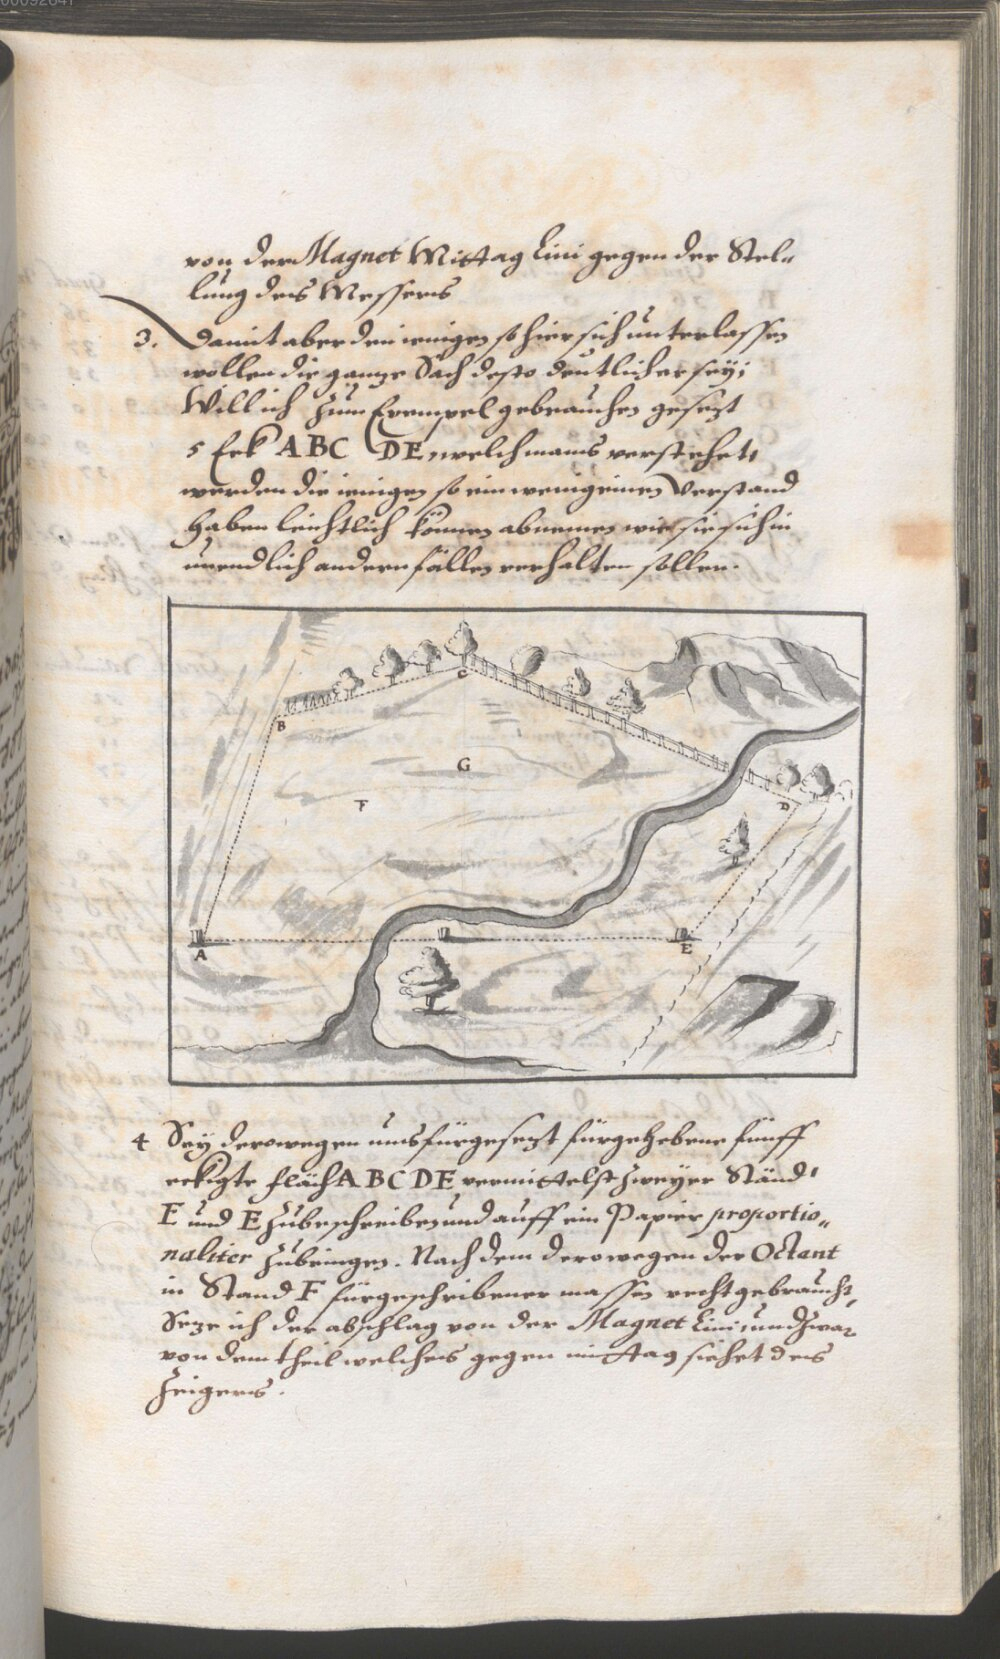 von der Magnet Mittag Lini gegen der Stel-
lung des Messers
3. Damit aber den ienigen so hier sich unterlassen
wollen die ganze Sach desto deutlicher sey;
Will ich zum Exempel gebrauchen gesezt
5 Eck ABC DE, welch mans verstehet,
werden die ienigen so ein wenig einen Verstand
haben leichtlich können abnemen wie sie sich in
unendlich andern fällen verhalten sollen.
C
B
G
F
D
A
E
4 Sey derowegen uns fürgesezt fürgegebene fünff
eckigte fläch ABCDE vermittelst zweyer Ständ
F und E zubeschreiben und auff ein Papier proportio-
naliter zubringen. Nach dem derowegen der Octant
in Stand F fürgeschribener massen recht gebraucht,
Seze ich der abschlag von der Magnet Lini, und zwar
von dem theil welches gegen mittag siehet des
Zeigers.